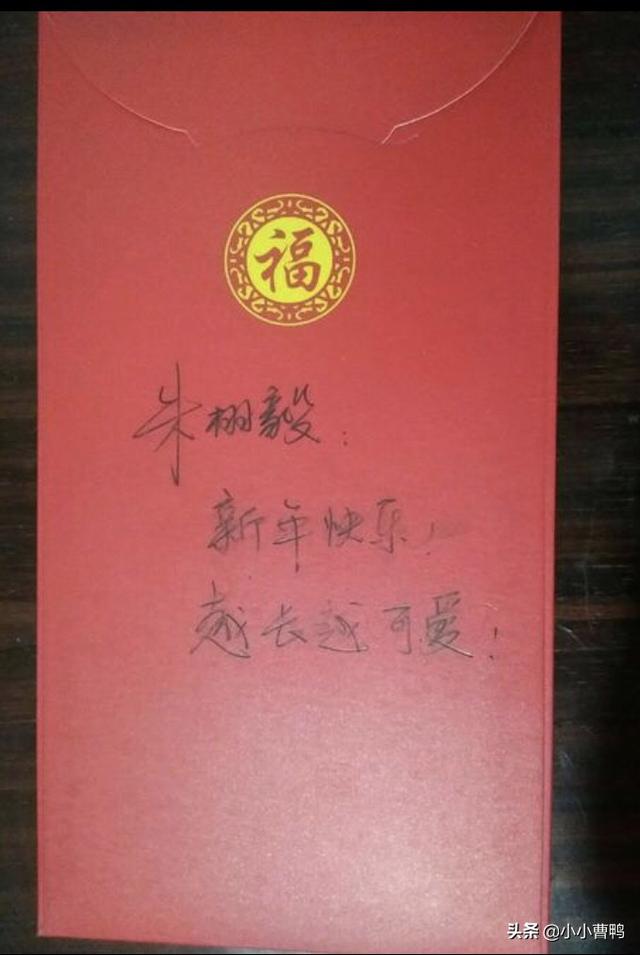 福
朱栩毅：
新年快乐！
越长越可爱！
头条 @小小曹鸭